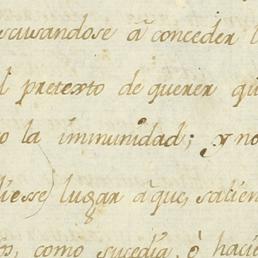 cusandose à conceder l
l pretexto de querer qu
o la immunidad; y no
diesse lugar à que, salien
, como sucedia, ò hacie